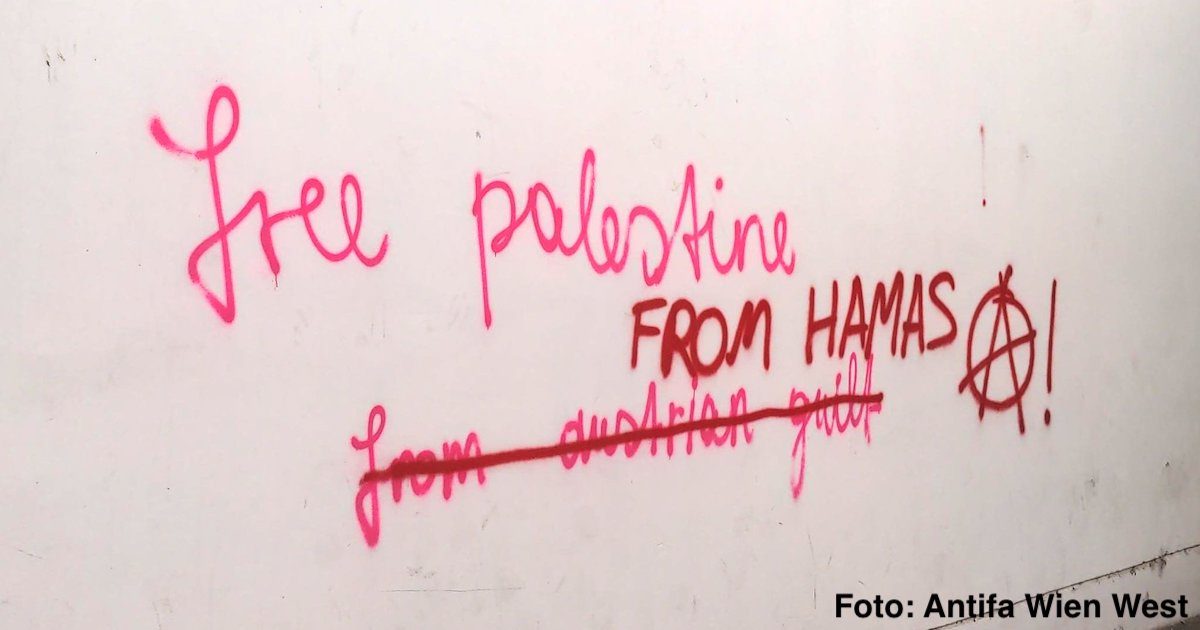 Free palestine
FROM HAMAS Ⓐ!
from austrian guilt
Foto: Antifa Wien West